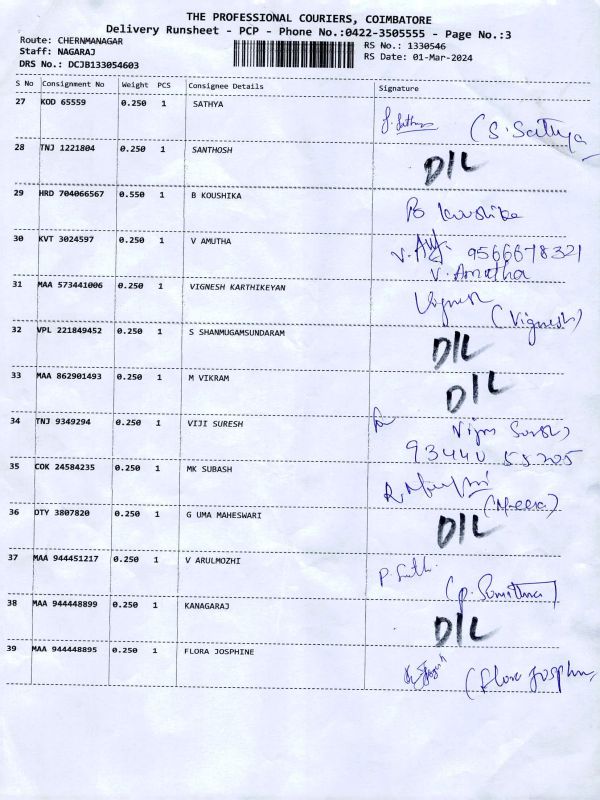 THE PROFESSIONAL COURIERS, COIMBATORE
Delivery Runsheet - PCP - Phone No.:0422-3505555 - Page No.:3
Route: CHERNMANAGAR
RS No.: 1330546
Staff: NAGARAJ
RS Date: 01-Mar-2024
DRS No.: DCJB133054603
S No Consignment No Weight PCS Consignee Details Signature
27 KOD 65559 0.250 1 SATHYA
(S. Sathya
28 TNJ 1221804 0.250 1 SANTHOSH D/L
29 HRD 704066567 0.550 1 B KOUSHIKA B Koushika
30 KVT 3024597 0.250 1 V AMUTHA 9566678321
V. Amutha
31 MAA 573441006 0.250 1 VIGNESH KARTHIKEYAN Vignesh
(Vignesh)
32 VPL 221849452 0.250 1 S SHANMUGAMSUNDARAM D/L
33 MAA 862901493 0.250 1 M VIKRAM D/L
34 TNJ 9349294 0.250 1 VIJI SURESH
93440 55205
35 COK 24584235 0.250 1 MK SUBASH
(Meera)
36 OTY 3807820 0.250 1 G UMA MAHESWARI D/L
37 MAA 944451217 0.250 1 V ARULMOZHI
(P. Sumithra)
38 MAA 944448899 0.250 1 KANAGARAJ D/L
39 MAA 944448895 0.250 1 FLORA JOSPHINE